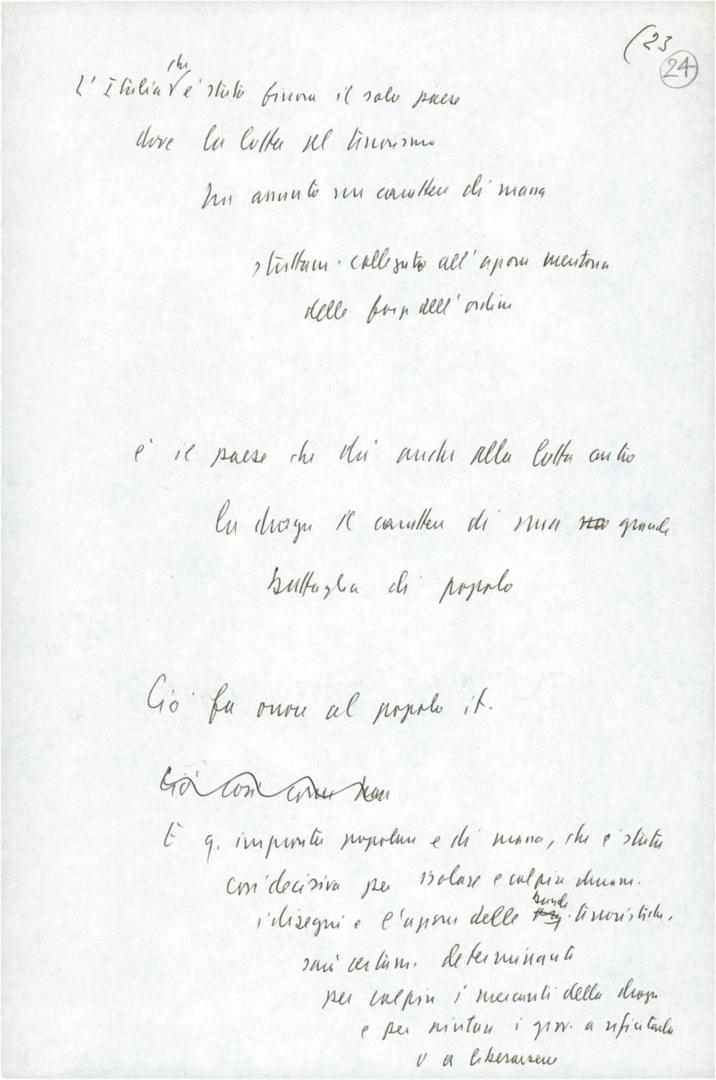 (23
24
che
L'Italia è stato finora il solo paese
dove la lotta al terrorismo
ha assunto un carattere di massa
strettam. collegato all'azione meritoria
delle forze dell'ordine
è il paese che dà anche alla lotta contro
la droga il carattere di una grande
battaglia di popolo
Ciò fa onore al popolo it.
Ciò così come
E q. impronta popolare e di massa, che è stata
così decisiva per isolare e colpire duram.
i disegni e l'azione delle bande terroristiche,
sarà certam. determinante
per colpire i mercanti della droga
e per aiutare i giov. a rifiutarla
o a liberarsene